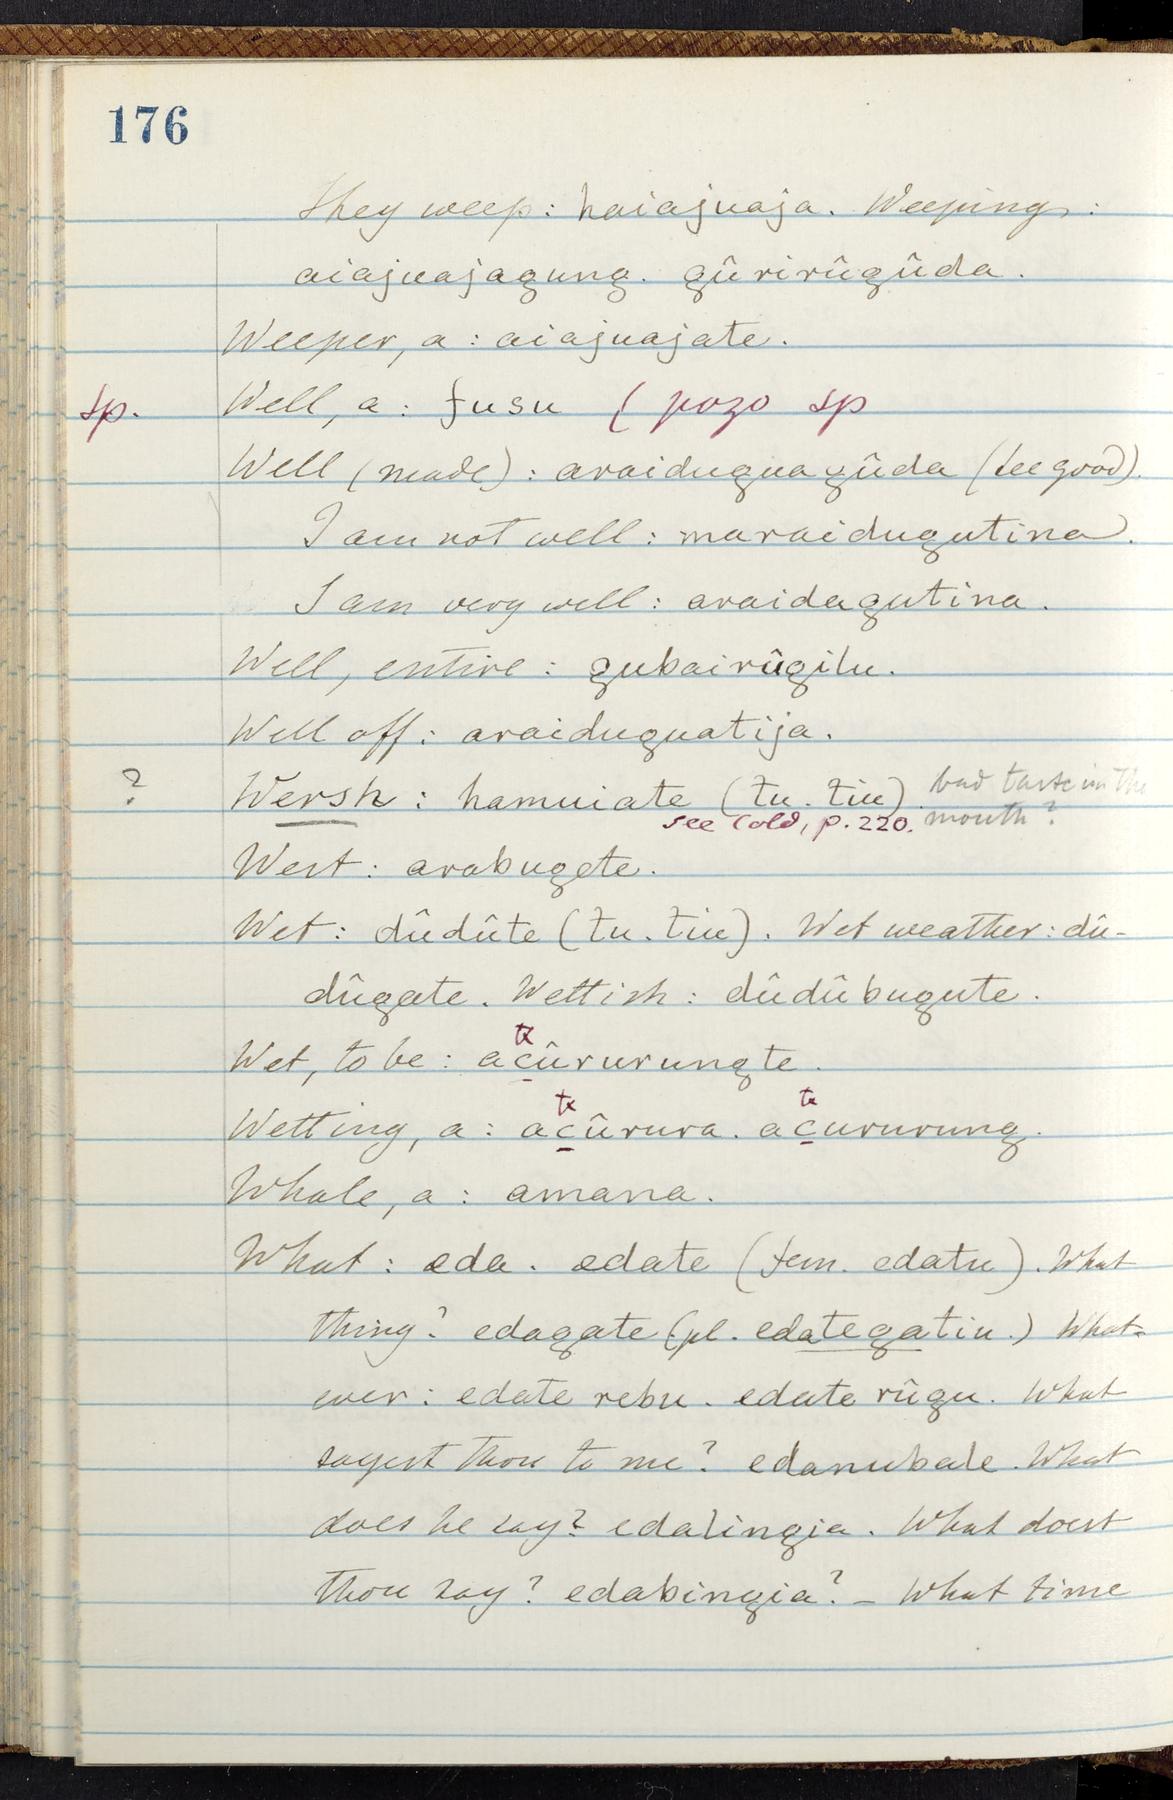 176
They weep: haiajuaja. Weeping:
aiajuajagung. gûrirûgûda.
Weeper, a: aiajuajate.
sp. Well, a: fusu ( pozo sp
Well (made): araiduguagûda (see good).
I am not well: maraidugutina.
I am very well: araidagutina.
Well, entire: gubairûgilu.
Well off: araiduguatija.
? Wersh: hamuiate (tu. tiu). bad taste in the
see Cold, p. 220. mouth?
West: arabugete.
Wet: dûdûte (tu. tiu). Wet weather: dû-
dûgate. Wettish: dûdûbugute.
tx
Wet, to be: acûrurungte.
tx tx
Wetting, a: acûrura. acururung.
Whale, a: amana.
What: eda. edate (fem. edatu). What
thing? edagate (pl. edategatiu.) What-
ever: edate rebu. edate rûgu. What
sayest thou to me? edanubale. What
does he say? edalingia. What doest
thou say? edabingia? – What time